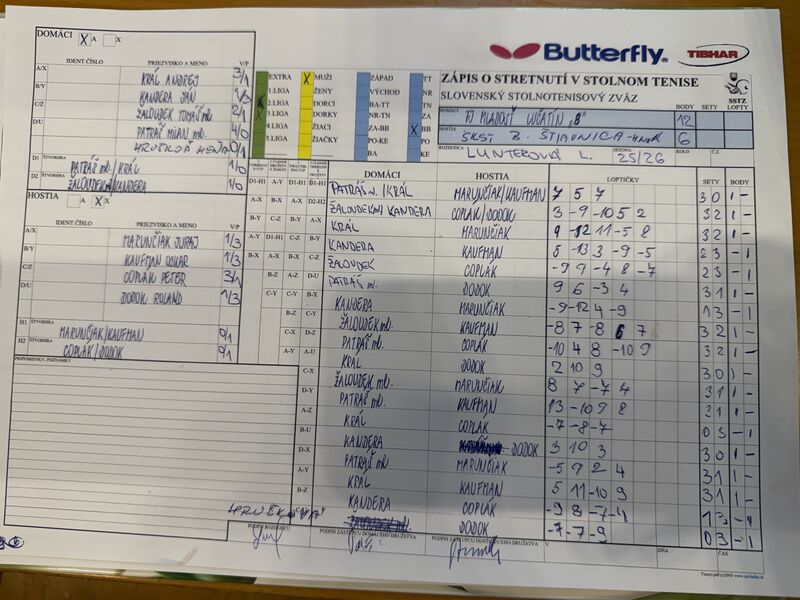 DOMÁCI X A X
IDENT.ČÍSLO PRIEZVISKO A MENO V/P
A/X KRÁĽ ANDREJ 3/1
B/Y KANDERA JÁN 1/3
C/Z ŽALOUDEK TOMÁŠ ml. 2/1
D/U PATRÁŠ MILAN ml. 4/0
0/1
D1 ŠTVORHRA PATRÁŠ ml/KRÁĽ 1/0
D2 ŽALOUDEK/KANDERA 1/0
HOSTIA A X X
IDENT.ČÍSLO PRIEZVISKO A MENO V/P
A/X MARUNČIAK JURAJ 1/3
B/Y KAUFMAN OSKAR 1/3
C/Z COPLÁK PETER 3/1
D/U DODOK ROLAND 1/3
H1 ŠTVORHRA MARUNČIAK/KAUFMAN 0/1
H2 ŠTVORHRA COPLÁK/DODOK 0/1
PRIPOMIENKY, POZNÁMKY
Butterfly TIBHAR
EXTRA X MUŽI ZÁPAD TT
1.LIGA ŽENY VÝCHOD NR
2.LIGA DORCI BA-TT TN
3.LIGA DORKY NR-TN ZA
4.LIGA ŽIACI ZA-BB X BB
5.LIGA ŽIAČKY PO-KE PO
BA KE
ZÁPIS O STRETNUTÍ V STOLNOM TENISE
SLOVENSKÝ STOLNOTENISOVÝ ZVÄZ
SSTZ
DOMÁCI TJ MLADOSŤ LUČATÍN "B" BODY 12 SETY LOPTY
HOSTIA ŠKST B. ŠTIAVNICA 6
ROZHODCA LUNTEROVÁ L. SEZÓNA 25/26 KOLO Č.
DOMÁCI HOSTIA LOPTIČKY SETY BODY
D1-H1 A-Y D1-H1 D1-H1 PATRÁŠ ml. /KRÁĽ MARUNČIAK/KAUFMAN 7 5 7 3 0 1 -
A-X B-X A-X D2-H2 ŽALOUDEK ml/ KANDERA COPLÁK/DODOK 3 -9 -10 5 2 3 2 1 -
B-Y C-Z B-Y A-X KRÁĽ MARUNČIAK 9 -12 11 -5 8 3 2 1 -
A-Y D1-H1 C-Z B-Y KANDERA KAUFMAN 5 -13 3 -9 -5 2 3 - 1
B-X A-X A-Y C-Z ŽALOUDEK COPLÁK -9 9 -4 8 -7 2 3 - 1
B-Z A-Z D-U PATRÁŠ ml. DODOK 9 6 -3 4 3 1 1 -
C-Y C-Y B-X KANDERA MARUNČIAK -9 -12 4 -9 1 3 - 1
B-Z C-Y ŽALOUDEK ml. KAUFMAN -8 7 -8 6 7 3 2 1 -
C-X D-Z PATRÁŠ ml. COPLÁK -10 4 8 -10 9 3 2 1 -
A-Y A-U KRÁĽ DODOK 2 10 9 3 0 1 -
C-X ŽALOUDEK ml. MARUNČIAK 8 7 -7 4 3 1 1 -
D-Y PATRÁŠ ml. KAUFMAN 13 -10 9 8 3 1 1 -
A-Z KRÁĽ COPLÁK -7 -8 -7 0 3 - 1
B-U KANDERA DODOK 3 10 3 3 0 1 -
D-X PATRÁŠ ml. MARUNČIAK -5 9 2 4 3 1 1 -
A-Y KRÁĽ KAUFMAN 5 11 -10 9 3 1 1 -
B-Z KANDERA COPLÁK -9 8 -7 -4 1 3 - 1
DODOK -7 -7 -9 0 3 - 1
PODPIS ROZHODCU PODPIS ZÁSTUPCU DOMÁCEHO DRUŽSTVA PODPIS ZÁSTUPCU HOSŤUJÚCEHO DRUŽSTVA V DŇA ČAS